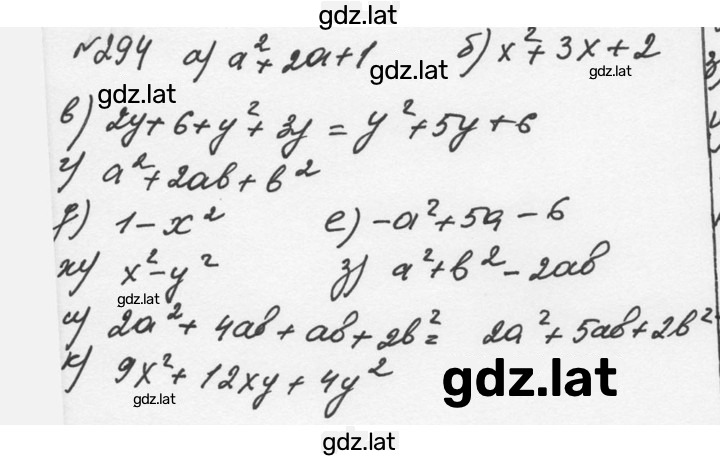 gdz.lat
№294 а) a² + 2a + 1 б) x² + 3x + 2
gdz.lat gdz.lat
gdz.lat
в) 2y + 6 + y² + 3y = y² + 5y + 6
г) a² + 2ab + b²
д) 1 - x² е) -a² + 5a - 6
ж) x² - y² з) a² + b² - 2ab
gdz.lat
и) 2a² + 4ab + ab + 2b² = 2a² + 5ab + 2b²
к) 9x² + 12xy + 4y² gdz.lat
gdz.lat
gdz.lat